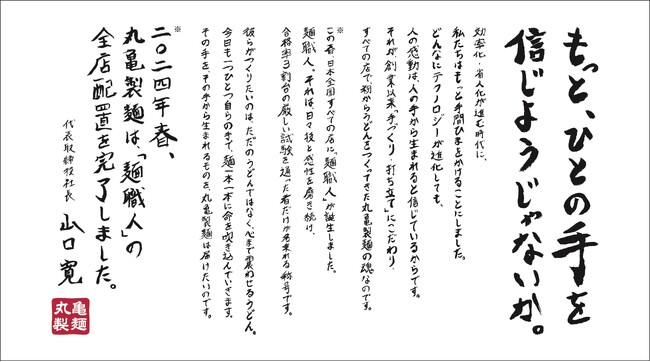 もっと、ひとの手を
信じようじゃないか。
効率化・省人化が進む時代に、
私たちはもっと手間ひまをかけることにしました。
どんなにテクノロジーが進化しても、
人の感動は、人の手から生まれると信じているからです。
それが創業以来、「手づくり・打ち立て」にこだわり、
すべての店で、粉からうどんをつくってきた丸亀製麺の魂なのです。
※
この春、日本全国すべての店に、「麺職人」が誕生しました。
麺職人。それは、日々技と感性を磨き続け、
合格率3割台の厳しい試験を通った者だけが名乗れる称号です。
彼らがつくりたいのは、ただのうどんではなく、心まで震わせるうどん。
今日も一つひとつ自らの手で、麺一本一本に命を吹き込んでいきます。
その手を、その手から生まれるものを、丸亀製麺は届けたいのです。
※
二〇二四年春、
丸亀製麺は、「麺職人」の
全店配置を完了しました。
代表取締役社長 山口 寛
丸亀製麺